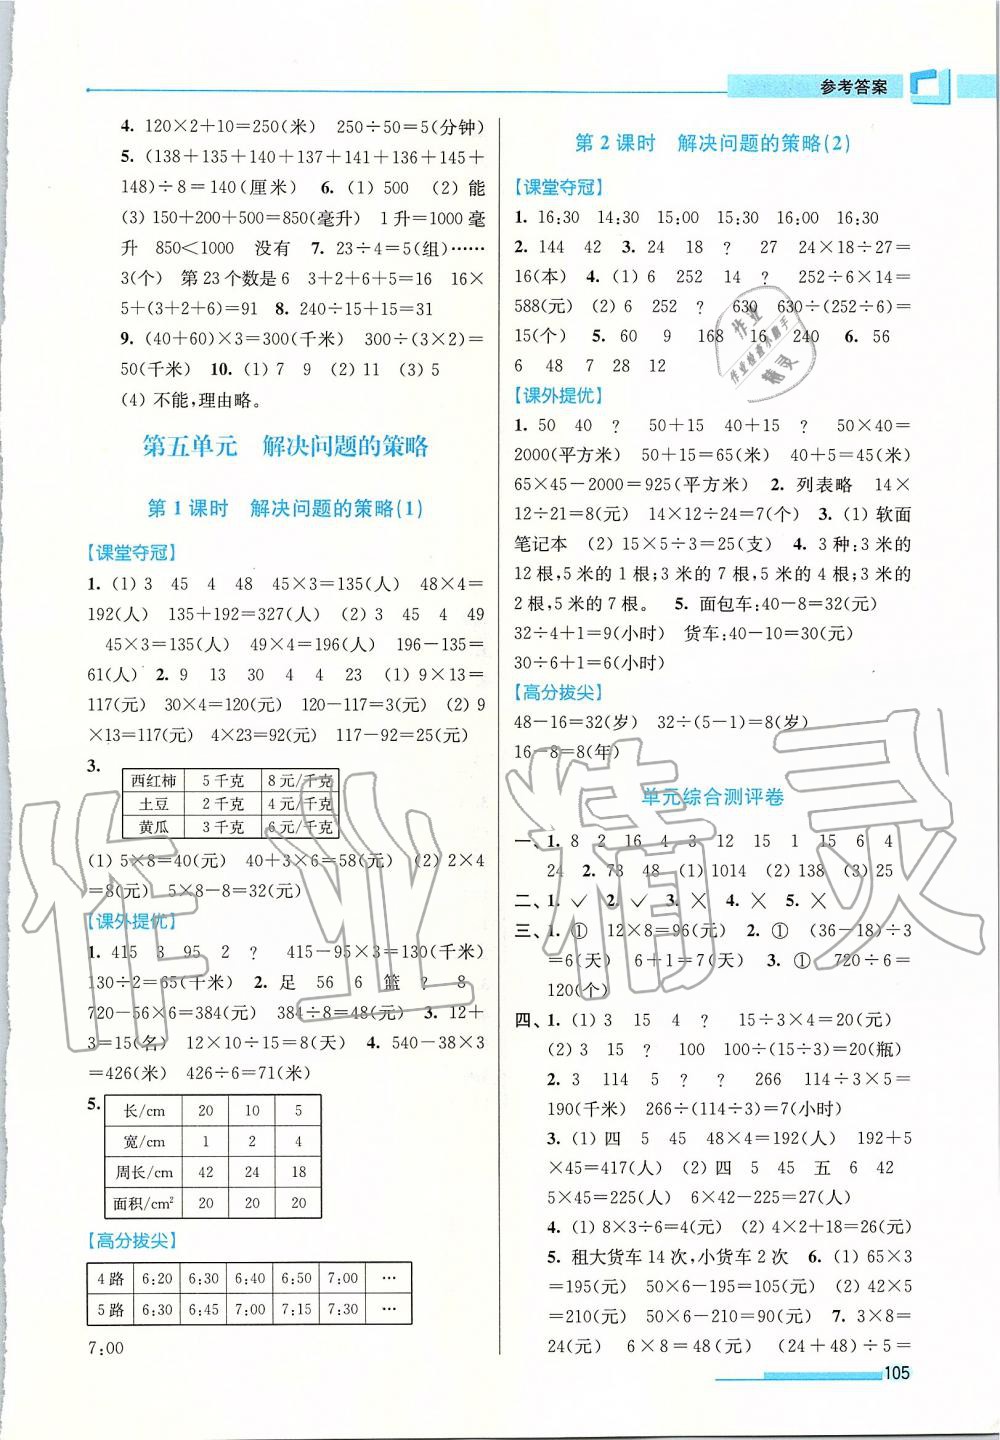 参考答案
4. 120×2+10=250(米) 250÷50=5(分钟)
5. (138+135+140+137+141+136+145+
148)÷8=140(厘米) 6. (1) 500 (2) 能
(3) 150+200+500=850(毫升) 1升=1000毫
升 850<1000 没有 7. 23÷4=5(组)……
3(个) 第23个数是6 3+2+6+5=16 16×
5+(3+2+6)=91 8. 240÷15+15=31
9. (40+60)×3=300(千米) 300÷(3×2)=
50(千米) 10. (1) 7 9 (2) 11 (3) 5
(4) 不能,理由略。
第五单元 解决问题的策略
第1课时 解决问题的策略(1)
【课堂夺冠】
1. (1) 3 45 4 48 45×3=135(人) 48×4=
192(人) 135+192=327(人) (2) 3 45 4 49
45×3=135(人) 49×4=196(人) 196-135=
61(人) 2. 9 13 30 4 4 23 (1) 9×13=
117(元) 30×4=120(元) 120-117=3(元) (2) 9
×13=117(元) 4×23=92(元) 117-92=25(元)
3.
西红柿 5千克 8元/千克
土豆 2千克 4元/千克
黄瓜 3千克 6元/千克
(1) 5×8=40(元) 40+3×6=58(元) (2) 2×4
=8(元) 5×8-8=32(元)
【课外提优】
1. 415 3 95 2 ? 415-95×3=130(千米)
130÷2=65(千米) 2. 足 56 6 篮 ? 8
720-56×6=384(元) 384÷8=48(元) 3. 12+
3=15(名) 12×10÷15=8(天) 4. 540-38×3
=426(米) 426÷6=71(米)
5.
长/cm 20 10 5
宽/cm 1 2 4
周长/cm 42 24 18
面积/cm² 20 20 20
【高分拔尖】
4路 6:20 6:30 6:40 6:50 7:00 …
5路 6:30 6:45 7:00 7:15 7:30 …
7:00
第2课时 解决问题的策略(2)
【课堂夺冠】
1. 16:30 14:30 15:00 15:30 16:00 16:30
2. 144 42 3. 24 18 ? 27 24×18÷27=
16(本) 4. (1) 6 252 14 ? 252÷6×14=
588(元) (2) 6 252 ? 630 630÷(252÷6)=
15(个) 5. 60 9 168 16 240 6. 56
6 48 7 28 12
【课外提优】
1. 50 40 ? 50+15 40+15 ? 50×40=
2000(平方米) 50+15=65(米) 40+5=45(米)
65×45-2000=925(平方米) 2. 列表略 14×
12÷21=8(元) 14×12÷24=7(个) 3. (1) 软面
笔记本 (2) 15×5÷3=25(支) 4. 3种:3米的
12根,5米的1根;3米的7根,5米的4根;3米的
2根,5米的7根。 5. 面包车:40-8=32(元)
32÷4+1=9(小时) 货车:40-10=30(元)
30÷6+1=6(小时)
【高分拔尖】
48-16=32(岁) 32÷(5-1)=8(岁)
16-8=8(年)
单元综合测评卷
一、1. 8 2 16 4 3 12 15 1 15 6 4
24 2. 73 48 (1) 1014 (2) 138 (3) 25
二、1. ✓ 2. ✓ 3. × 4. × 5. ×
三、1. ① 12×8=96(元) 2. ① (36-18)÷3
=6(天) 6+1=7(天) 3. ① 720÷6=
120(个)
四、1. (1) 3 15 4 ? 15÷3×4=20(元)
(2) 3 15 ? 100 100÷(15÷3)=20(瓶)
2. 3 114 5 ? ? 266 114÷3×5=
190(千米) 266÷(114÷3)=7(小时)
3. (1) 四 5 45 48×4=192(人) 192+5
×45=417(人) (2) 四 5 45 五 6 42
5×45=225(人) 6×42-225=27(人)
4. (1) 8×3÷6=4(元) (2) 4×2+18=26(元)
5. 租大货车14次,小货车2次 6. (1) 65×3
=195(元) 50×6-195=105(元) (2) 42×5
=210(元) 50×6-210=90(元) 7. 3×8=
24(元) 6×8=48(元) (24+48)÷5=
105
作业精灵
作业
作业检查小助手
精灵